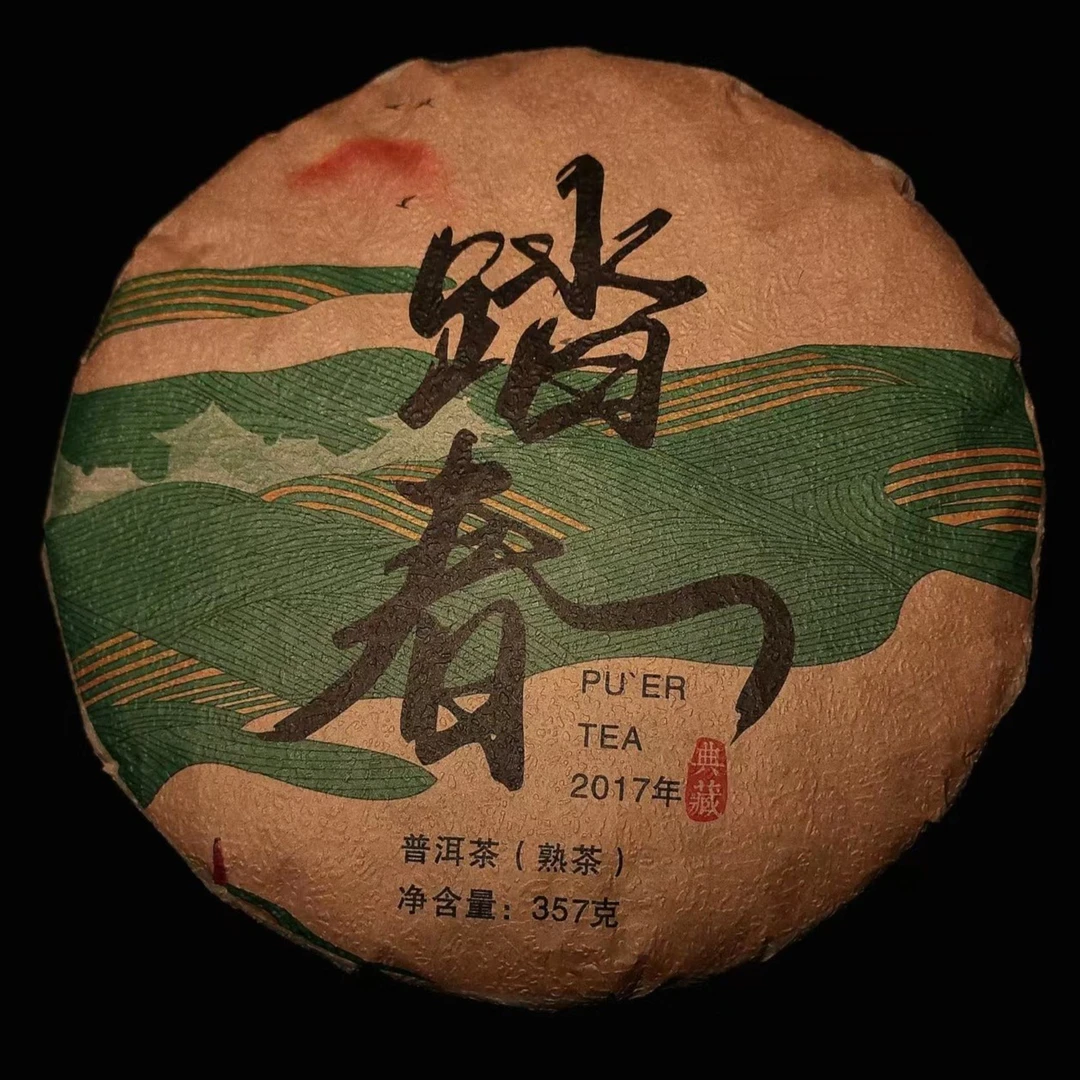 踏
春
PU`ER
TEA
2017年
典藏
普洱茶（熟茶）
净含量：357克